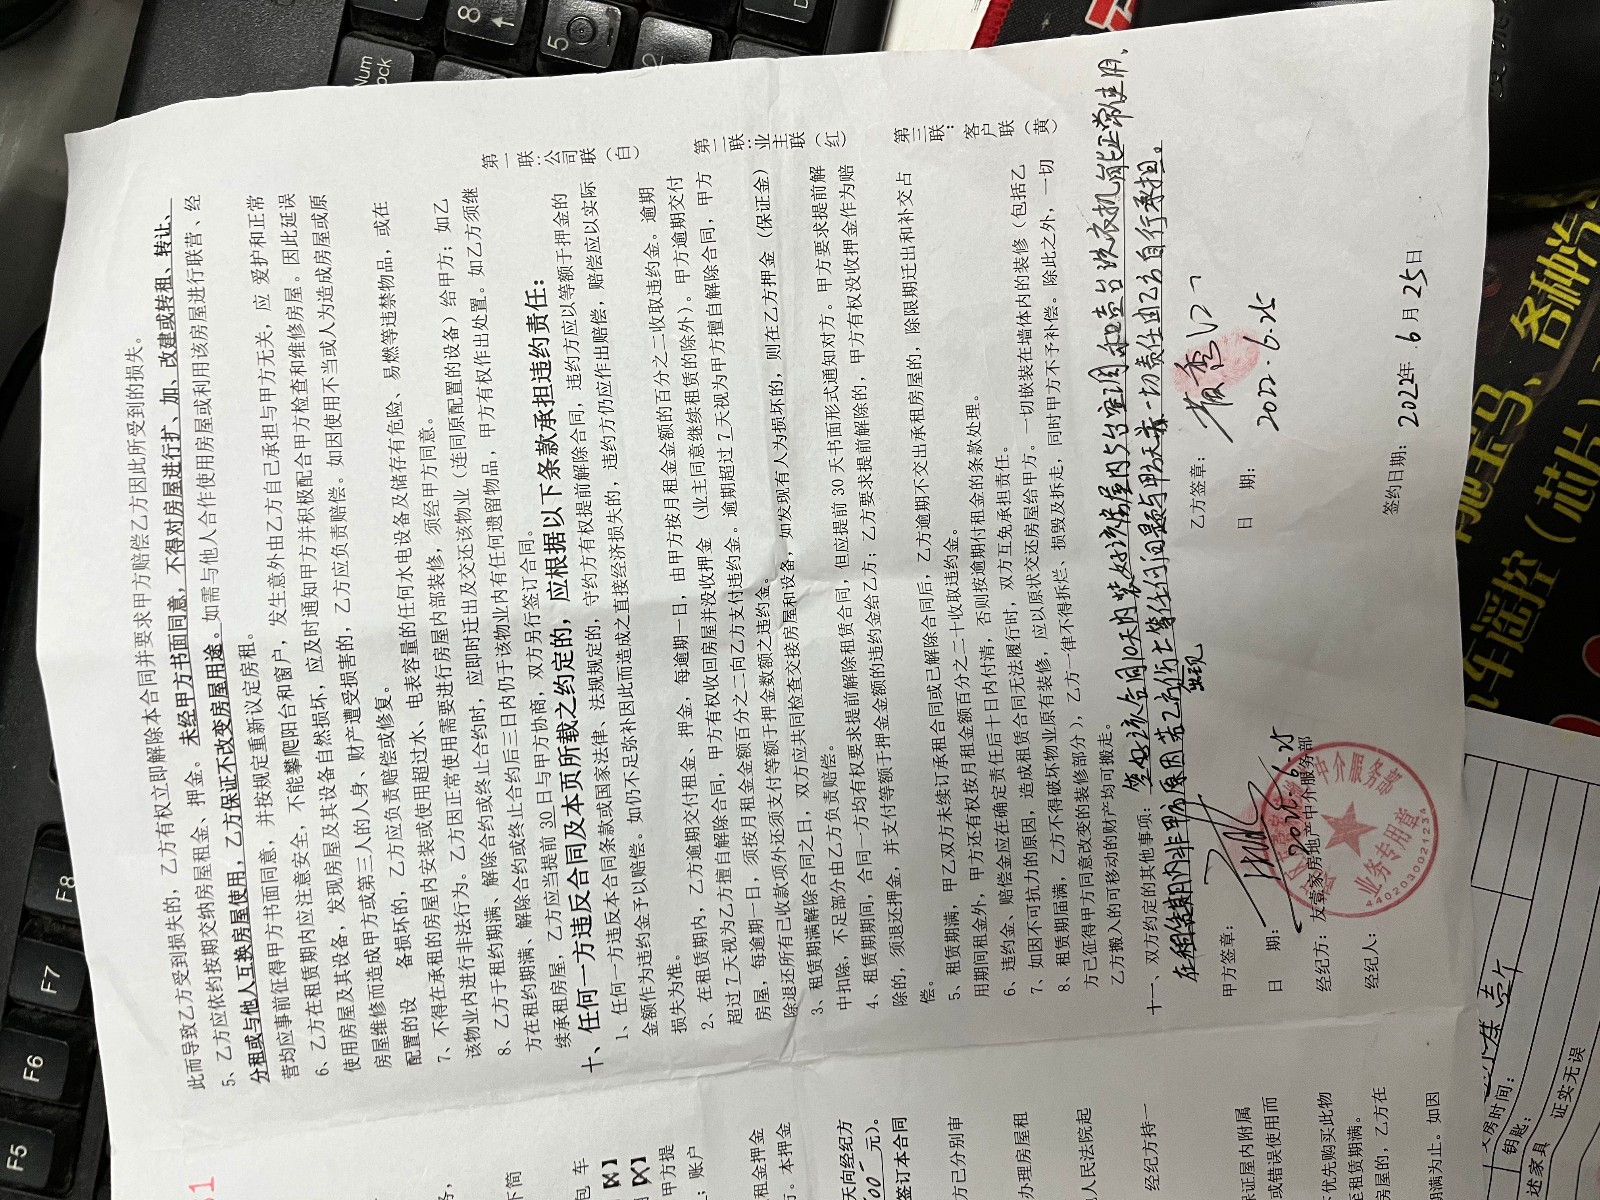 此而导致乙方受到损失的，乙方有权立即解除本合同并要求甲方赔偿乙方因此所受到的损失。
5、乙方应依约按期交纳房屋租金、押金。未经甲方书面同意，不得对房屋进行扩、加、改建或转租、转让、
分租或与他人互换房屋使用，乙方保证不改变房屋用途。如需与他人合作使用房屋或利用该房屋进行联营、经
营均应事前征得甲方书面同意，并按规定重新议定房租。
6、乙方在租赁期内应注意安全，不能攀爬阳台和窗户，发生意外由乙方自己承担与甲方无关，应 爱护和正常
使用房屋及其设备，发现房屋及其设备自然损坏，应及时通知甲方并积极配合甲方检查和维修房屋。因此延误
房屋维修而造成甲方或第三人的人身、财产遭受损害的，乙方应负责赔偿。如因使用不当或人为造成房屋或原
配置的设 备损坏的，乙方应负责赔偿或修复。
7、不得在承租的房屋内安装或使用超过水、电表容量的任何水电设备及储存有危险、易燃等违禁物品，或在
该物业内进行非法行为。乙方因正常使用需要进行房屋内部装修，须经甲方同意。
8、乙方于租约期满、解除合约或终止合约时，应即时迁出及交还该物业（连同原配置的设备）给甲方；如乙
方在租约期满、解除合约或终止合约后三日内仍于该物业内有任何遗留物品，甲方有权作出处置。如乙方须继
续承租房屋，乙方应当提前 30 日与甲方协商，双方另行签订合同。
十、任何一方违反合同及本页所载之约定的，应根据以下条款承担违约责任：
1、任何一方违反本合同条款或国家法律、法规规定的，守约方有权提前解除合同，违约方应以等额于押金的
金额作为违约金予以赔偿。如仍不足弥补因此而造成之直接经济损失的，违约方仍应作出赔偿，赔偿应以实际
损失为准。
2、在租赁期内，乙方逾期交付租金、押金，每逾期一日，由甲方按月租金金额的百分之二收取违约金。逾期
超过 7 天视为乙方擅自解除合同，甲方有权收回房屋并没收押金（业主同意继续租赁的除外）。甲方逾期交付
房屋，每逾期一日，须按月租金金额百分之二向乙方支付违约金。逾期超过 7 天视为甲方擅自解除合同，甲方
除退还所有已收款项外还须支付等额于押金数额之违约金。
3、租赁期满解除合同之日，双方应共同检查交接房屋和设备，如发现有人为损坏的，则在乙方押金（保证金）
中扣除，不足部分由乙方负责赔偿。
4、租赁期期间，合同一方均有权要求提前解除租赁合同，但应提前 30 天书面形式通知对方。甲方要求提前解
除的，须退还押金，并支付等额于押金金额的违约金给乙方；乙方要求提前解除的，甲方有权没收押金作为赔
偿。
5、租赁期满，甲乙双方未续订承租合同或已解除合同后，乙方逾期不交出承租房屋的，除限期迁出和补交占
用期间租金外，甲方还有权按月租金额百分之二十收取违约金。
6、违约金、赔偿金应在确定责任后十日内付清，否则按逾期付租金的条款处理。
7、如因不可抗力的原因，造成租赁合同无法履行时，双方互免承担责任。
8、租赁期届满，乙方不得破坏物业原有装修，应以原状交还房屋给甲方。一切嵌装在墙体内的装修（包括乙
方已征得甲方同意改变的装修部分），乙方一律不得拆烂、损毁及拆走，同时甲方不予补偿。除此之外，一切
乙方搬入的可移动的财产均可搬走。
十一、双方约定的其他事项：签好该合同10天内装好该房屋内5台空调和壹台洗衣机能正常使用，
在租赁期内非甲方原因 伤亡等任何问题与甲方无关一切责任由乙方自行承担。
出现
甲方签章：
乙方签章：
日 期： 2022.6.25
日 期： 2022.6.25
经纪方： 友壹家房地产中介服务部
经纪人：
签约日期：2022年 6 月 25日
第一联：公司联（白）
第二联：业主联（红）
第三联：客户联（黄）
中介服务部
业务专用章
4402030021237
包 车
甲方提
：账户
租金押金
。本押金
天向经纪方
元）。
签订本合同
方已分别审
办理房屋租
人民法院起
经纪方持一
保证屋内附属
或错误使用而
下优先购买此物
至租赁期满。
房屋的，乙方在
期满为止。如因
交房时间：
钥匙：
述家具
证实无误
车遥控（芯片）
宝马、各种
F5
F6
F7
F8
Num
Lock
8
5
2